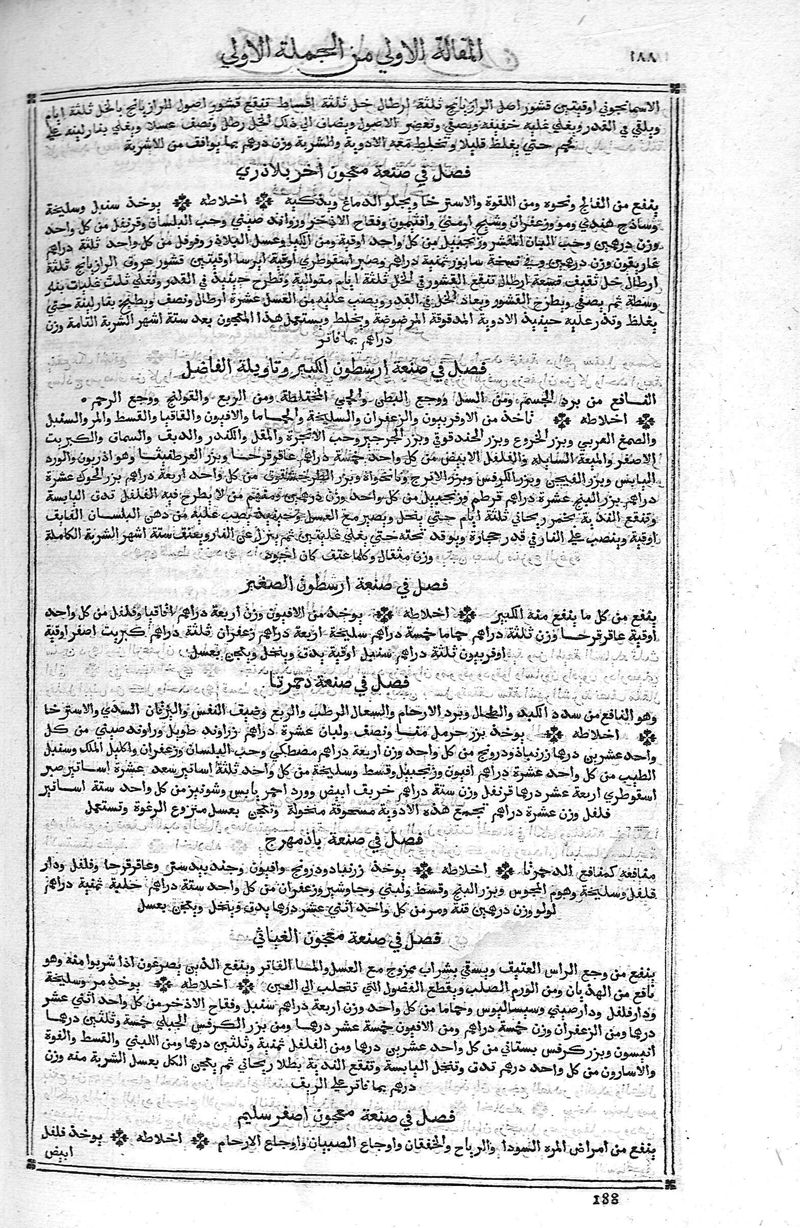 ١٨٨
المقالة الاولي من الجملة الاولي
الاسمانجوني اوقيتين قشور اصل الرازيانج ثلثة ارطال خل ثلثة اقساط تنقع قشور اصول الرازيانج بالخل ثلثة ايام
ويلقي في القدر ويغلي غليه خفيفه ويصفي وتعصر الاصول ويضاف الي ذلك الخل رطل ونصف عسلا ويغلي بنار لينه علي
جمر حتي يغلظ قليلا وتخلط معه الادوية والشربة وزن درهم بما يوافق من الاشربة
فصل في صنعة معجون اخر بلاذري
ينفع من الفالج ونحوه ومن اللقوة والاسترخا ويجلو الدماغ ويذكيه اخلاطه يوخذ سنبل وسليخة
وساذج هندي ومو وزعفران وشيح ارمني وافتيمون وفقاح الاذخر وراوند صيني وحب البلسان وقرنفل من كل واحد
وزن درهمين وحب البان المقشر وزنجبيل من كل واحد اوقية ومن الكيا وعسل البلاذر وفوفل من كل واحد ثلثة دراهم
غاريقون وزن درهمين وفي نسخة سابور ثمنية دراهم وصبر اسقوطري اوقية ايرسا اوقيتين قشور عروق الرازيانج ثلثة
ارطال خل ثقيف صنعة ارطال تنقع القشور في الخل ثلثة ايام متوالية وتطرح حينيذ في القدر وتغلي ثلث غليات بنار
وسطة ثم يصفي ويطرح القشور ويعاد الخل في القدر ويصب عليه من العسل عشرة ارطال ونصف ويطبخ بنار لينة حتي
يغلظ وتذر عليه حينيذ الادوية المدقوقة المرضوضة ويخلط ويستعمل هذا المعجون بعد ستة اشهر الشربة التامة وزن
دراهم بما فاتر
فصل في صنعة ارسطون الكبير وتاويلة الفاضل
النافع من برد الجسم ومن السل ووجع البطن والحمي المختلطة ومن الربع والقولنج ووجع الرحم
اخلاطه تاخذ من الاوفربيون والزعفران والسليخة والحماما والافيون والقاقيا والقسط والمر والسنبل
والصمغ العربي وبزر الخروع وبزر الحندقوقي وبزر الجرجير وحب الانجرة والمقل والكندر والدبق والسماق والكبريت
الاصفر والميعة السايلة والفلفل الابيض من كل واحد خمسة دراهم عاقرقرحا وبزر وهو اذريون والورد
اليابس وبزر الفيجن وبزر الكرفس وبزر الاترج ونانخواة وبزر من كل واحد اربعة دراهم بزر الحوك عشرة
دراهم بزر البنج عشرة دراهم قرطم وزنجبيل من كل واحد وزن درهمين ومنهم من لا يطرح فيه الفلفل تدق اليابسة
وتنقع الندية بخمر ريحاني ثلثة ايام حتي ينحل ويصير مع العسل وحينيذ يصب عليه من دهن البلسان الفايق
اوقية وينصب علي النار في قدر حجارة ويوقد تحته حتي يغلي غليتين ثم ينزل عن النار ويعتق ستة اشهر الشربة الكاملة
وزن مثقال وكلما عتق كان اجود
فصل في صنعة ارسطون الصغير
ينفع من كل ما ينفع منه الكبير اخلاطه يوخذ من الافيون وزن اربعة دراهم اقاقيا وفلفل من كل واحد
اوقية عاقرقرحا وزن ثلثة دراهم حماما خمسة دراهم سليخة اربعة دراهم زعفران ثلثة دراهم كبريت اصفر اوقية
اوفربيون ثلثة دراهم سنبل اوقية يدق وينخل ويعجن بعسل
فصل في صنعة دحمرتا
وهو النافع من سدد الكبد والطحال وبرد الارحام والسعال الرطب والربع وضيق النفس واليرقان السددي والاسترخا
اخلاطه يوخذ بزر حرمل منا ونصف ولبان عشرة دراهم زراوند طويل وراوند صيني من كل
واحد عشرين درهما زرنباذ ودرونج من كل واحد وزن اربعة دراهم مصطكي وحب البلسان وزعفران واكليل الملك وسنبل
الطيب من كل واحد عشرة دراهم افيون وزنجبيل وقسط وسليخة من كل واحد ثلثة اساتير سعد عشرة اساتير صبر
اسقوطري اربعة عشر درهما قرنفل وزن ستة دراهم خربق ابيض وورد احمر يابس وشونيز من كل واحد ستة اساتير
فلفل وزن عشرة دراهم تجمع هذه الادوية مسحوقة منخولة وتعجن بعسل منزوع الرغوة وتستعمل
فصل في صنعة باذمهرج
منافعه كمنافع الدحمرتا اخلاطه يوخذ زرنباد ودرونج وافيون وجندبيدستر وعاقرقرحا وفلفل ودار
فلفل وسليخة وهوم المجوس وبزر البنج وقسط ولبني وجاوشير وزعفران من كل واحد ستة دراهم حلبة ثمنية دراهم
لولو وزن درهمين قنة ومر من كل واحد اثني عشر درهما يدق وينخل ويعجن بعسل
فصل في صنعة معجون الغياثي
ينفع من وجع الراس العتيق ويسقي بشراب ممزوج مع العسل والما الفاتر وينفع الذين يصرعون اذا شربوا منه وهو
نافع من الهذيان ومن الورم الصلب ويقطع الفضول التي تتحلب الي العين اخلاطه يوخذ مر وسليخة
ودار فلفل ودارصيني وسيساليوس وحماما من كل واحد وزن اربعة دراهم سنبل وفقاح الاذخر من كل واحد اثني عشر
درهما ومن الزعفران وزن خمسة دراهم ومن الافيون خمسة عشر درهما ومن بزر الكرفس الجبلي خمسة وثلثين درهما
انيسون وبزر كرفس بستاني من كل واحد عشرين درهما ومن الفلفل ثمنية وثلثين درهما ومن اللبني والقسط والفوة
والاسارون من كل واحد درهم تدق وتنخل اليابسة وتنقع الندية بطلا ريحاني ثم يعجن الكل بعسل الشربة منه وزن
درهم بما فاتر علي الريق
فصل في صنعة معجون اصغر سليم
ينفع من امراض المره السودا والرياح والخفقان واوجاع الصبيان واوجاع الارحام اخلاطه يوخذ فلفل
ابيض
188